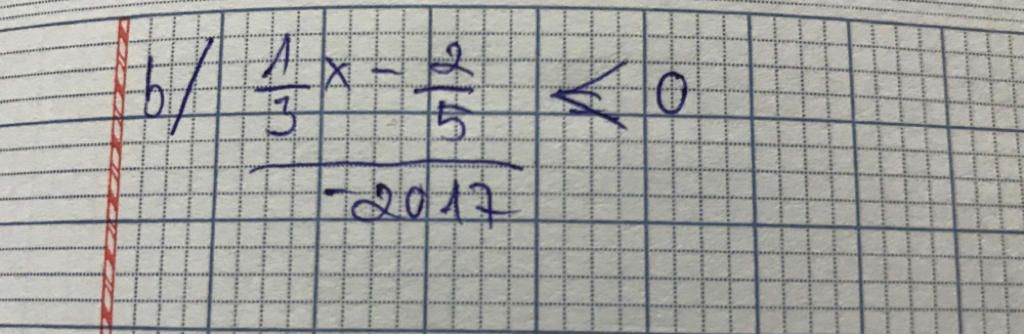 b/ 1/3 x - 2/5 ≤ 0
-2017